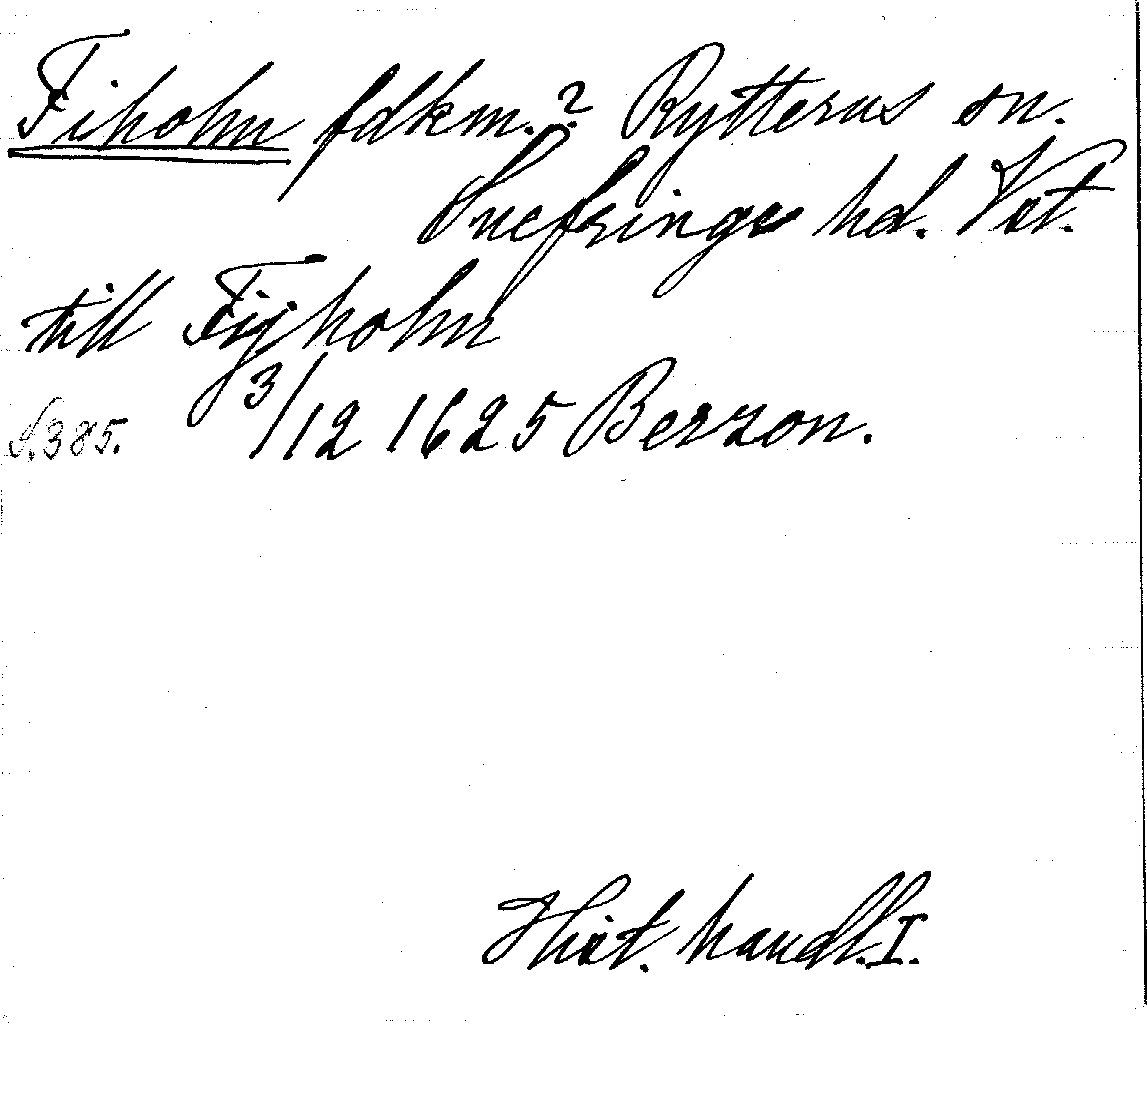 Fiholm fdkm.? Rytterns sn.
Snefringe hd. Vst.
till Fijholm
3/12 1625 Berzon.
S.385.
Hist. handl. I.